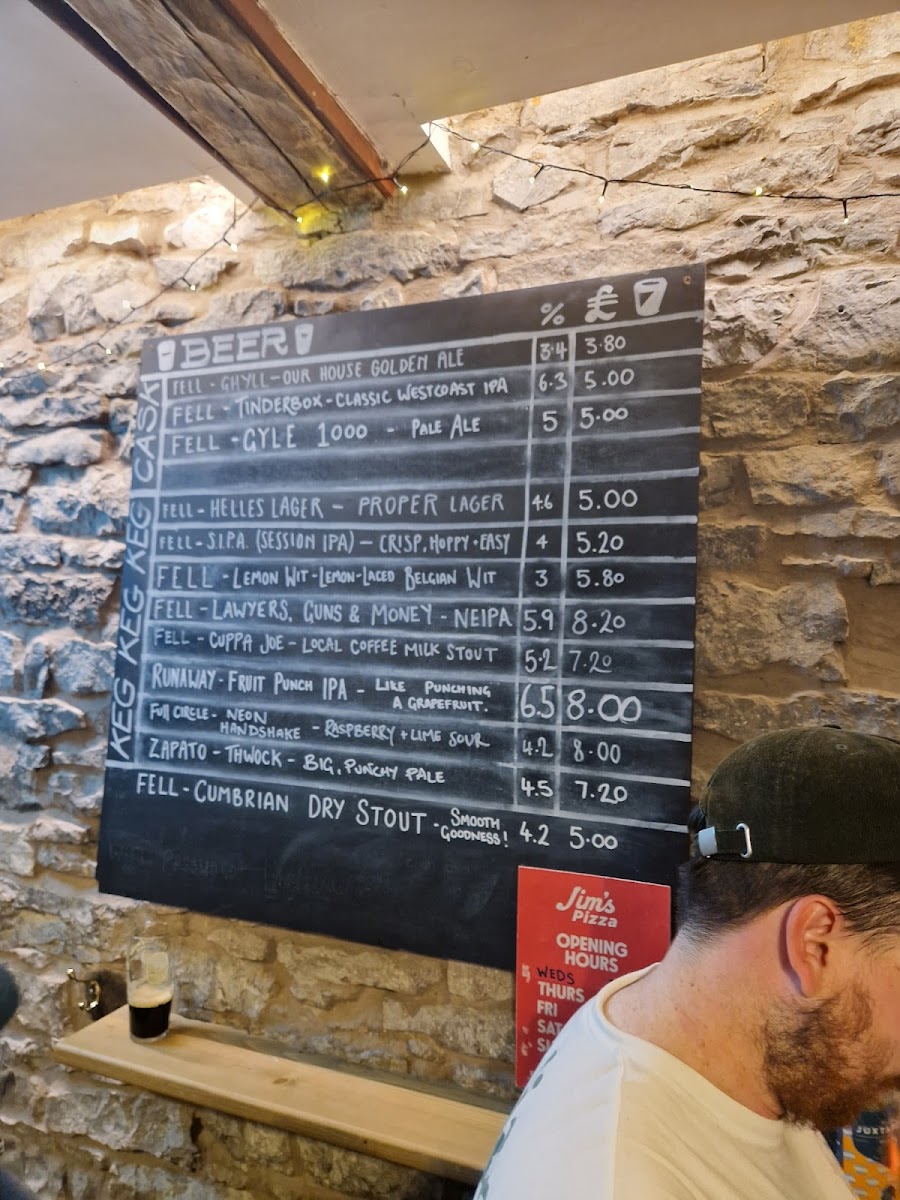 BEER % £
CASK
FELL - GHYLL - OUR HOUSE GOLDEN ALE 3.4 3.80
FELL - TINDERBOX - CLASSIC WESTCOAST IPA 6.3 5.00
FELL - GYLE 1000 - PALE ALE 5 5.00
KEG KEG KEG
FELL - HELLES LAGER - PROPER LAGER 4.6 5.00
FELL - S.I.P.A. (SESSION IPA) - CRISP, HOPPY + EASY 4 5.20
FELL - LEMON WIT - LEMON-LACED BELGIAN WIT 3 5.80
FELL - LAWYERS, GUNS & MONEY - NEIPA 5.9 8.20
FELL - CUPPA JOE - LOCAL COFFEE MILK STOUT 5.2 7.20
RUNAWAY - FRUIT PUNCH IPA - LIKE PUNCHING
A GRAPEFRUIT. 6.5 8.00
FULL CIRCLE - NEON
HANDSHAKE - RASPBERRY + LIME SOUR 4.2 8.00
ZAPATO - THWOCK - BIG, PUNCHY PALE 4.5 7.20
FELL - CUMBRIAN DRY STOUT - SMOOTH
GOODNESS! 4.2 5.00
Jim's
Pizza
OPENING
HOURS
WEDS
THURS
FRI
SAT